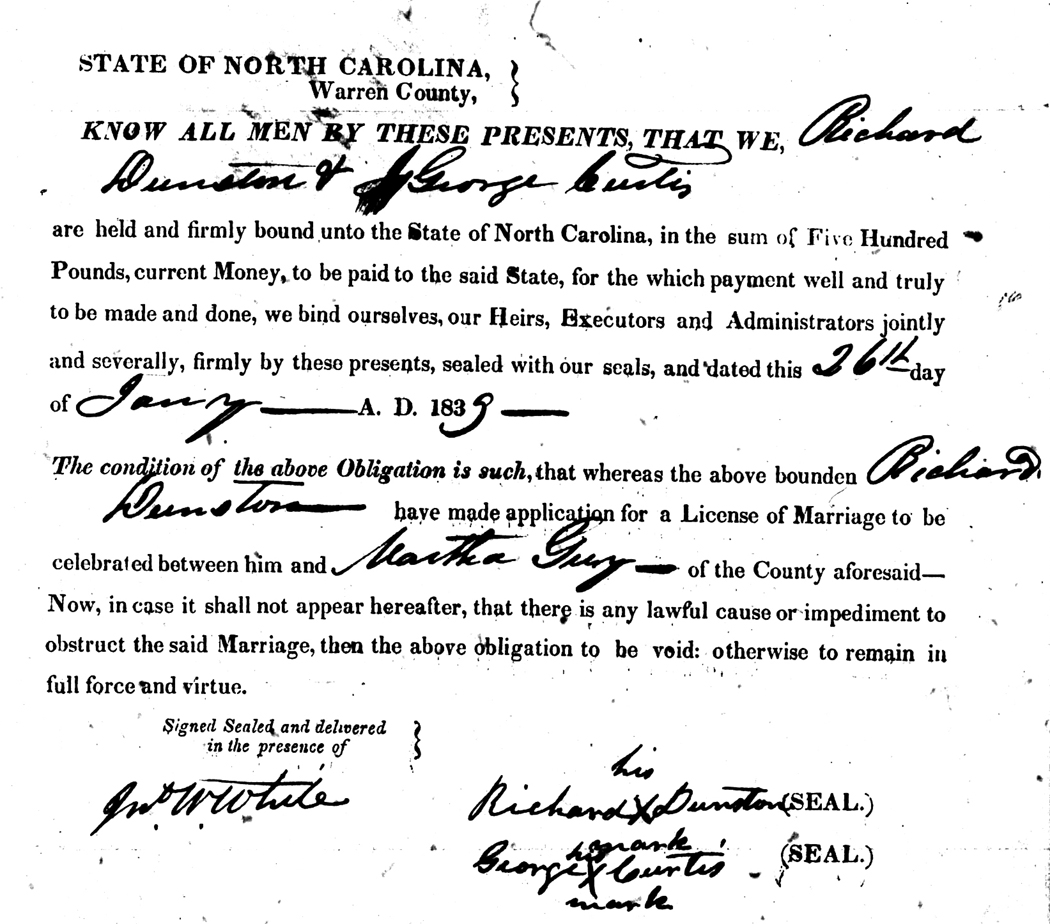 STATE OF NORTH CAROLINA,
Warren County,
KNOW ALL MEN BY THESE PRESENTS, THAT WE, Richard
Dunston & George Curtis
are held and firmly bound unto the State of North Carolina, in the sum of Five Hundred
Pounds, current Money, to be paid to the said State, for the which payment well and truly
to be made and done, we bind ourselves, our Heirs, Executors and Administrators jointly
and severally, firmly by these presents, sealed with our seals, and dated this 26th day
of Jany A. D. 1839
The condition of the above Obligation is such, that whereas the above bounden Richard
Dunston have made application for a License of Marriage to be
celebrated between him and Martha Guy of the County aforesaid—
Now, in case it shall not appear hereafter, that there is any lawful cause or impediment to
obstruct the said Marriage, then the above obligation to be void: otherwise to remain in
full force and virtue.
Signed Sealed and delivered
in the presence of
his
Jno. W. White
Richard X Dunston (SEAL.)
his mark
George X Curtis (SEAL.)
mark